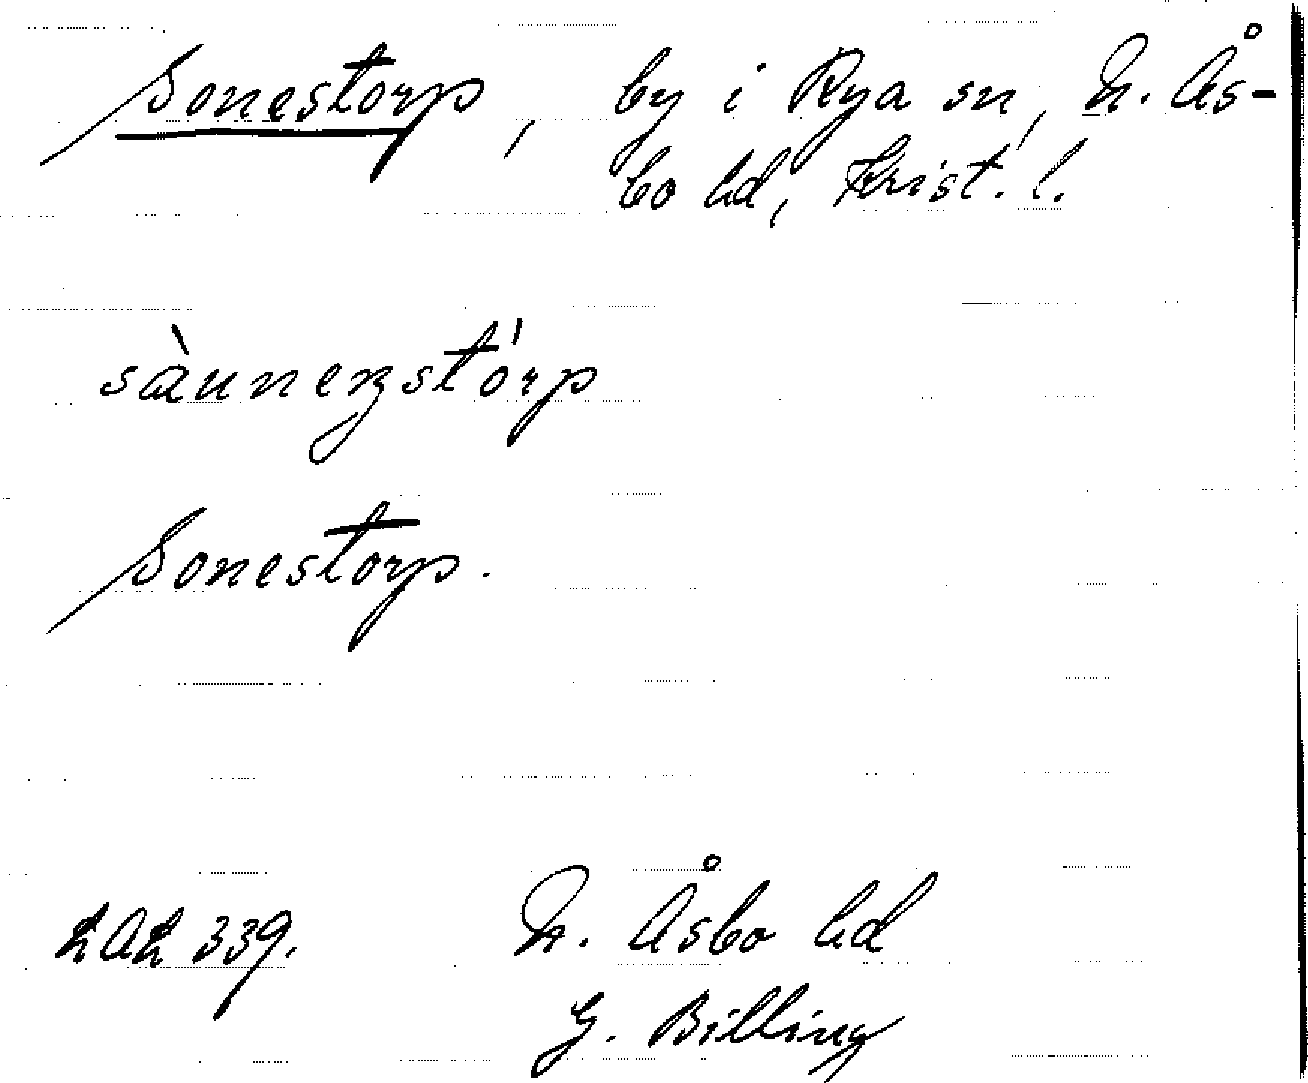 Sonestorp, by i Rya sn, N. Ås-
bo hd, Krist. l.
sàunenstórp
Sonestorp.
339.
N. Åsbo hd
G. Billing